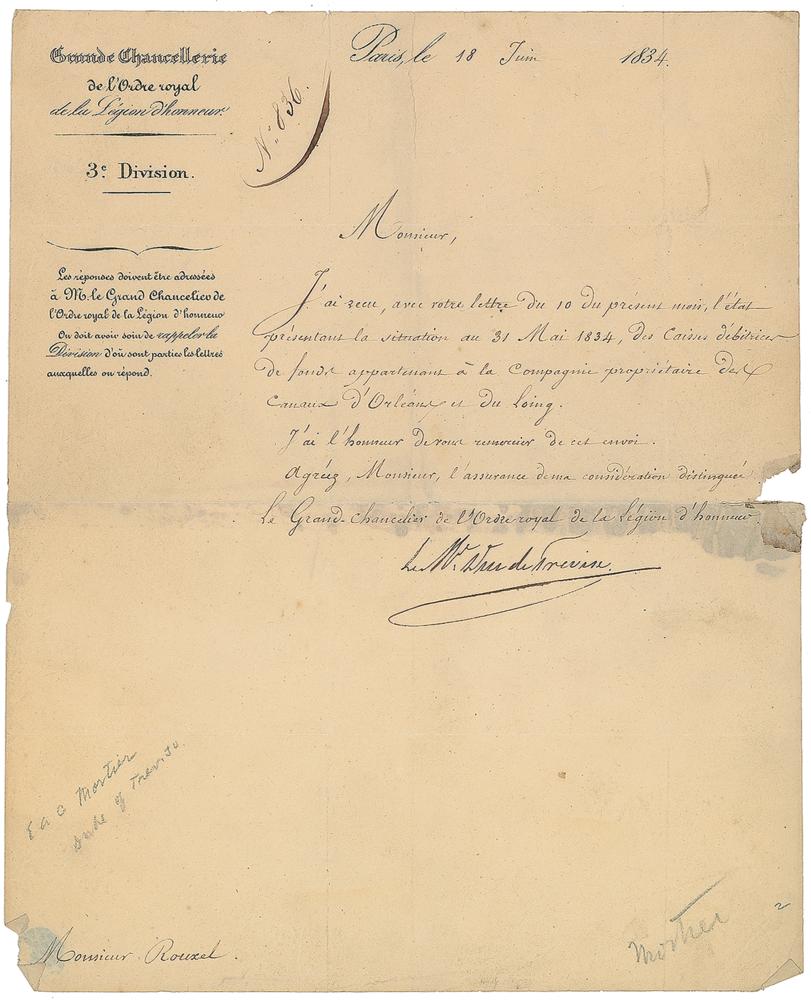 Grande Chancellerie
de l'Ordre royal
de la Légion d'honneur.
3e. Division.
Les réponses doivent être adressées
à M. le Grand Chancelier de
l'Ordre royal de la Légion d'honneur
On doit avoir soin de rappeler la
Division d'où sont parties les lettres
auxquelles on répond.
Paris, le 18 Juin 1834.
N° 836.
Monsieur,
J'ai reçu, avec votre lettre du 10 du présent mois, l'état
présentant la situation au 31 Mai 1834, des Caisses débitrices
de fonds appartenant à la Compagnie propriétaire des
Canaux d'Orléans et du Loing.
J'ai l'honneur de vous remercier de cet envoi.
Agréez, Monsieur, l'assurance de ma considération distinguée
Le Grand-Chancelier de l'Ordre royal de la Légion d'honneur.
Le Mal. Duc de Trévise.
E A C Mortier
Duke of Treviso
Monsieur Rouxel.
Mortier
2